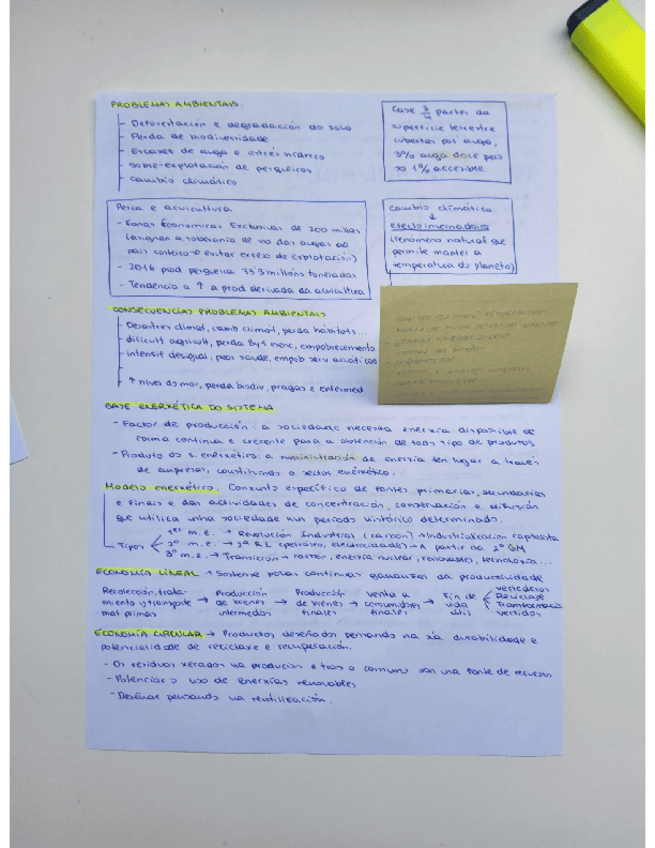 PROBLEMAS AMBIENTAIS.
- Deforestación e degradación do solo
- Perda de biodiversidade
- Escasez de auga e estrés hídrico
- Sobre-explotación de pesqueiras
- Cambio climático
Case 3/4 partes da
superficie terrestre
cubertas por auga,
3% auga doce pero
so 1% accesible
Pesca e acuicultura
- Zonas Económicas Exclusivas de 200 millas
(asignan a soberanía de uso das augas ao
país costeiro e evitar exceso de explotación)
- 2016 prod pesqueira millóns toneladas
- Tendencia a ↑ a prod derivada da acuicultura
Cambio climático
↓
efecto invernadoiro
(fenómeno natural que
permite manter a
temperatura do planeta)
CONSECUENCIAS PROBLEMAS AMBIENTAIS
- Desastres climat, camb climat, perda hábitats...
- dificult agricult, perda ByS, empobrecemento
- intensif desigual, peor saude, empob serv acuáticos
- ↑ nivel do mar, perda biodiv, pragas e enfermed
BASE ENERXÉTICA DO SISTEMA
- Factor de producción: a sociedade necesita enerxía dispoñible de
forma continua e crecente para a obtención de todo tipo de produtos
- Produto do s. enerxético: a suministración de enerxía ten lugar a través
de empresas, constituíndo o sector enerxético.
Modelo enerxético. Conxunto específico de fontes primarias, secundarias
e finais e das actividades de concentración, conservación e difusión
que utiliza unha sociedade nun período histórico determinado.
Tipos
1er m.e. → Revolución Industrial (carbón) → Industrialización capitalista
2º m.e. → 2ª R.I. (petróleo, electricidade) → A partir da 2ª GM
3º m.e. → Transición → carbón, enerxía nuclear, renovables, tecnoloxía...
ECONOMÍA LINEAL → Sostense polas continuas ganancias da produtividade
Recolección, trata-
miento y transporte
mat primas → Producción
de bienes
intermedios → Producción
de bienes
finales → Venta a
consumidores
finales → Fin de
vida
útil
vertederos
Reciclaje
Transformación
vertidos
ECONOMÍA CIRCULAR → Productos deseñados pensando na súa durabilidade e
potencialidade de reciclaxe e recuperación.
- Os residuos xerados na producion e tras o consumo son unha fonte de recursos
- Potenciar o uso de enerxías renovables
- Deseñar pensando na reutilización.